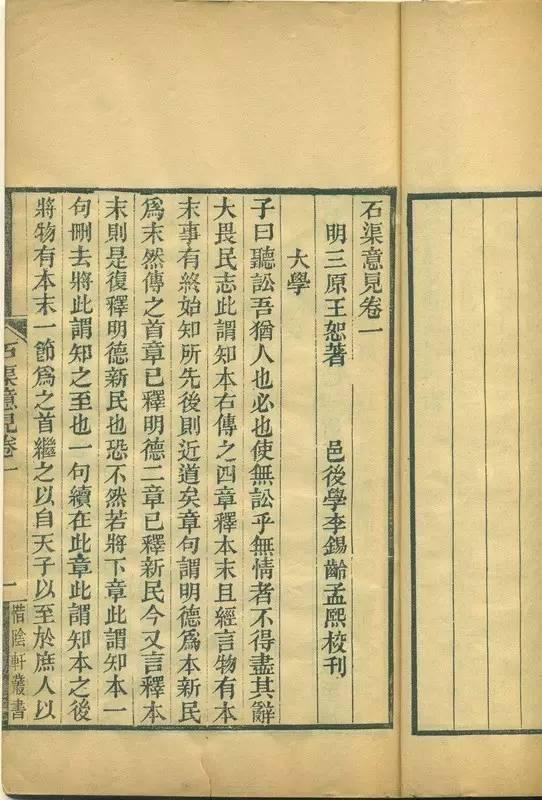 石渠意見卷一
明三原王恕著　邑後學李錫齡孟熙校刊
大學
子曰聽訟吾猶人也必也使無訟乎無情者不得盡其辭
大畏民志此謂知本右傳之四章釋本末且經言物有本
末事有終始知所先後則近道矣章句謂明德爲本新民
爲末然傳之首章已釋明德二章已釋新民今又言釋本
末則是復釋明德新民也恐不然若將下章此謂知本一
句刪去將此謂知之至也一句續在此章此謂知本之後
將物有本末一節爲之首繼之以自天子以至於庶人以
石渠意見卷一
一
惜陰軒叢書